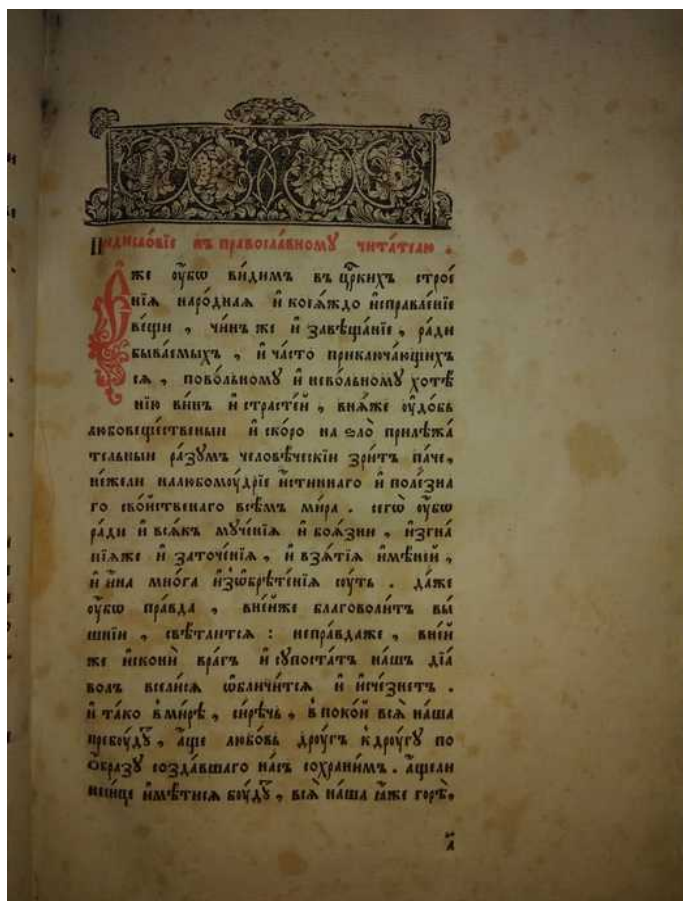 Предисло́вїе къ правосла́вному чита́телю .
А҆́же ᲂу҆́бѡ ви́димъ въ цр҃кихъ строе́
нїѧ наро́днаѧ и҆ коеѧ́ждо и҆справле́нїе
ве́щи , чи́нъ же и҆ завѣща́нїе , ра́ди
быва́емыхъ , и҆ ча́сто приключа́ющихъ
сѧ , пово́льному и҆ нево́льному хотѣ̀
нїю ви́нъ и҆ страсте́й , внѧ́же ᲂу҆до́бь
любовеще́ственыи и҆ ско́ро на ѕло̀ прилѣжа́
тельныи ра́зумъ человѣ́ческїи зри́тъ па́че ,
не́жели налюбомꙋ́дрїе и҆́стиннаго и҆ поле́зна
го сво́йственаго всѣ́мъ ми́ра . сегѡ̀ ᲂу҆́бѡ
ра́ди и҆ всѧ́къ мꙋче́нїѧ и҆ боѧ́зни , и҆згна́
нїѧже и҆ заточе́нїѧ , и҆ взѧ́тїѧ и҆мѣ́ней ,
и҆ и҆́на мно́га и҆зѡ҆брѣте́нїѧ сꙋ́ть . да́же
ᲂу҆́бѡ пра́вда , вне́йже благоволи́тъ вы́
шнїи , свѣ́тлитсѧ : непра́вдаже , вне́й
же и҆сконѝ вра́гъ и҆ сꙋпоста́тъ на́шъ дїа́
волъ всели́сѧ ѡ҆бличи́тсѧ и҆ и҆сче́знетъ .
и҆ та́ко в̾ми́рѣ , си́рѣчь , в̾поко́и всѧ̀ на́ша
пребꙋ́дꙋ , а҆́ще любо́вь дрꙋ́гъ к̾дрꙋ́гꙋ по
ѻ҆́бразꙋ созда́вшаго на́съ сохрани́мъ . а҆́щели
неси́це и҆мѣ́тисѧ бꙋ́дꙋ , всѧ̀ на́ша ꙗ҆́же горѣ̀ ,
а҃